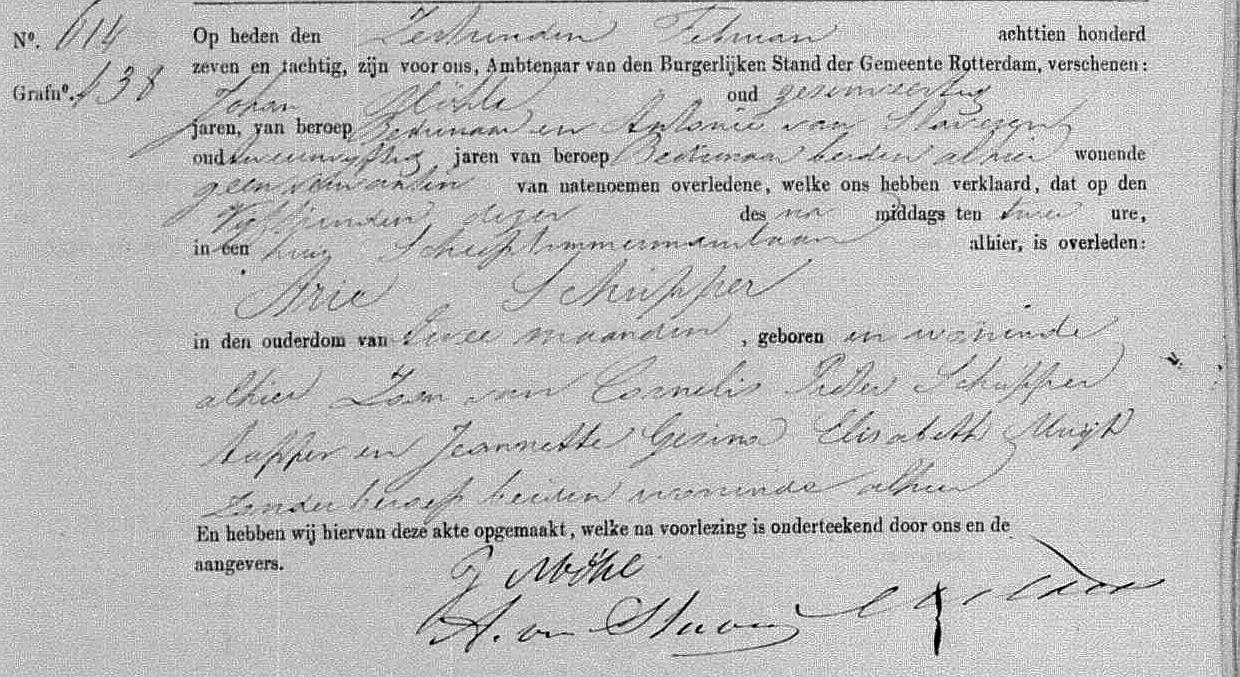 Nº. 614 Op heden den Zestienden Februari achttien honderd
zeven en tachtig, zijn voor ons, Ambtenaar van den Burgerlijken Stand der Gemeente Rotterdam, verschenen:
Grafnº. 138 Johan Möhle oud zesenveertig
jaren, van beroep Bedienaar en Antonie van Staveren
oud tweeenvyftig jaren van beroep Bedienaar beiden alhier wonende
geen verwanten van natenoemen overledene, welke ons hebben verklaard, dat op den
Vyftienden dezer des na middags ten twee ure,
in een huis Scheepstimmermanslaan alhier, is overleden:
Arie Schipper
in den ouderdom van twee maanden, geboren en wonende
alhier Zoon van Cornelis Pieter Schipper
tapper en Jeannette Gesina Elisabeth Muijt
zonder beroep beiden wonende alhier
En hebben wij hiervan deze akte opgemaakt, welke na voorlezing is onderteekend door ons en de
aangevers.
J Möhle
A. van Staveren